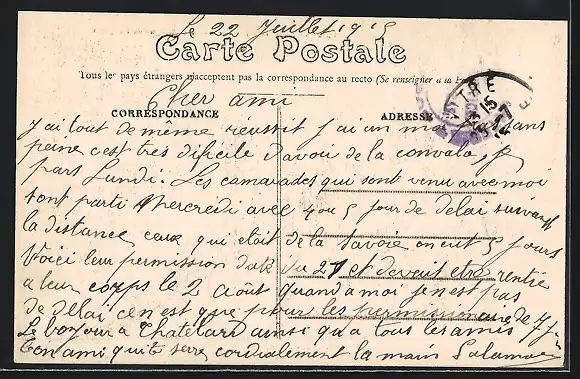 Le 22 Juillet 1915
Carte Postale
Tous les pays étrangers n'acceptent pas la correspondance au recto (Se renseigner à la
Cher ami
CORRESPONDANCE
ADRESSE
VITRE
J'ai tout de même reussit j'ai un mois sans
peine c'est tres dificile d'avoir de la convalo, je
pars Lundi. Les camarades qui sont venu avec moi
sont parti Mercredi avec 4 ou 5 jour de delai suivant
la distance ceux qui etait de la Savoie on eut 5 jours
Voici leur permission date du 27 et devront etre rentré
a leur corps le 2 Août quand a moi je nest pas
de delai cen est que pour les permissionnaire de 7 j
Le bonjour a Chatelard ainsi qu'a tous les amis
Ton ami qui te serre cordialement la main